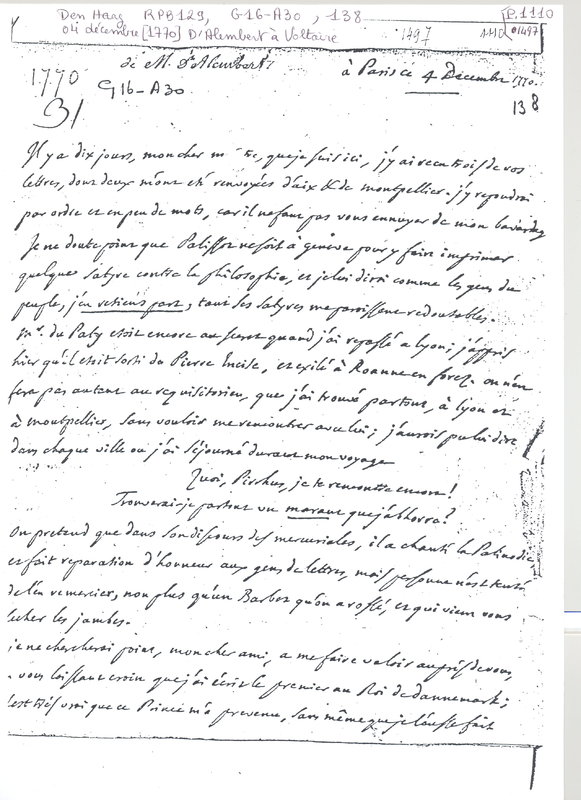 Den Haag RPB129, G16-A30, 138
04 décembre [1770] D'Alembert à Voltaire
1497
1110
P.1110
01497
de M. D'Alembert
à Paris ce 4 Décembre 1770.
1770
G16-A30
138
31
Il y a dix jours, mon cher m tre, que je suis ici, j'y ai recu trois de vos
lettres, dont deux m'ont eté renvoyées d'aix & de montpellier. j'y repondrai
par ordre et en peu de mots, car il ne faut pas vous ennuyer de mon bavardag
Je ne doute point que Palissot ne soit à géneve pour y faire imprimer
quelque satyre contre la philosophie, et je lui dirai comme les gens du
peuple, j'en retiens part; tout ses satyres me paroissent redoutables.
mr. du Paty etoit encore au secret quand j'ai repassé a lyon; j'appris
hier qu'il etoit sorti de Pierre Encise, et exilé à Roanne en forez. on n'en
fera pas autant au requisitorien, que j'ai trouvé partout, à lyon et
à montpellier, sans vouloir me rencontrer avec lui; j'aurois pu lui dire
dans chaque ville où j'ai séjourné durant mon voyage
Quoi, Pirrhus, je te rencontre encore!
Trouverai-je partout un maraut que j'abhorre?
On pretend que dans son discours des mercuriales, il a chanté la Palinodie
et fait reparation d'honneur aux gens de lettres, mais personne n'est tenté
de l'en remercier, non plus qu'un Barbet qu'on a rossé, et qui vient vous
lecher les jambes.
je ne chercherai point, mon cher ami, a me faire valoir auprès de vous,
vous laissant croire que j'ai écrit le premier au Roi de dannemark;
est très vrai que ce Prince m'a prevenu, sans même que je l'eusse fait